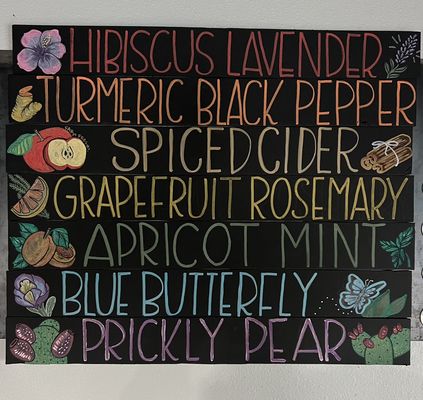 HIBISCUS LAVENDER
TURMERIC BLACK PEPPER
SPICED CIDER
GRAPEFRUIT ROSEMARY
APRICOT MINT
BLUE BUTTERFLY
PRICKLY PEAR